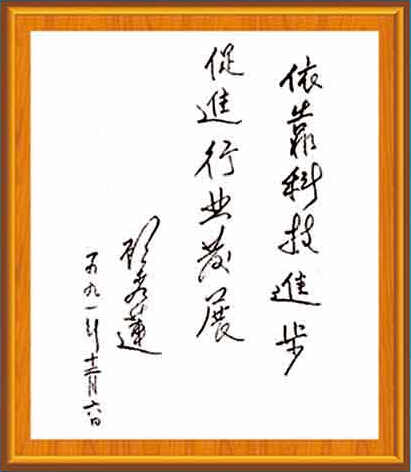 依靠科技進步
促進行业發展
顾秀蓮
一九九一年十二月六日